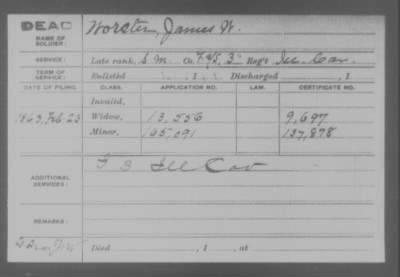 DEAD
NAME OF SOLDIER: Worster, James W.
SERVICE: Late rank, S. M. Co. F. & S., 3" Reg't Ill. Cav.
TERM OF SERVICE: Enlisted , 1 , Discharged , 1
DATE OF FILING. CLASS. APPLICATION NO. LAW. CERTIFICATE NO.
Invalid,
1863, Feb 23 Widow, 13,556 9,697
Minor, 165,091 127,878
ADDITIONAL SERVICES: 3 Ill Cav
REMARKS:
Died , 1 , at